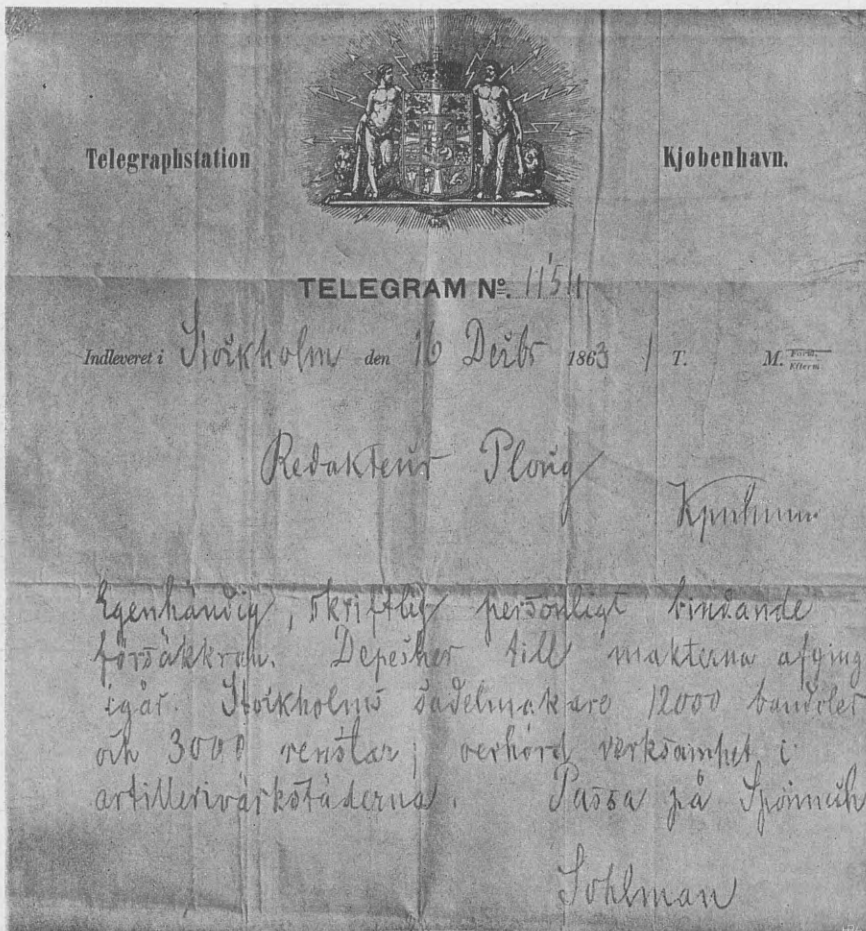 Telegraphstation Kjøbenhavn.
TELEGRAM Nº. 1154
Indleveret i Stockholm den 16 Decbr 1863 1 T. M. Form. Efterm
Redakteur Ploug
Egenhändig, skriftlig personligt bindande
försäkkran. Depescher till makterna afging
igår. Stockholms sadelmakare 12000 bandoler
och 3000 remtar; oerhörd verksamhet i
artillerivärkstäderna. Passa på
Sohlman